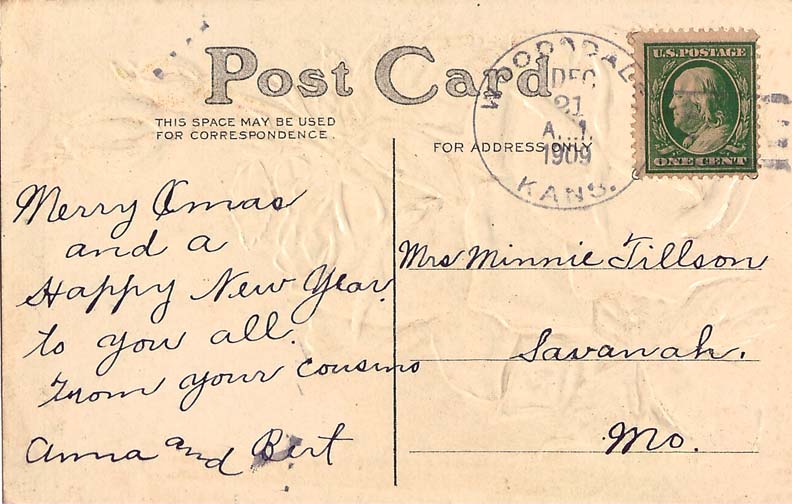 Post Card
THIS SPACE MAY BE USED
FOR CORRESPONDENCE.
FOR ADDRESS ONLY
WOODSDALE
DEC
21
1909
KANS.
U.S. POSTAGE
ONE CENT
Merry Xmas
and a
Happy New Year
to you all.
From your cousins
Anna and Bert
Mrs Minnie Tillson
Savanah.
Mo.